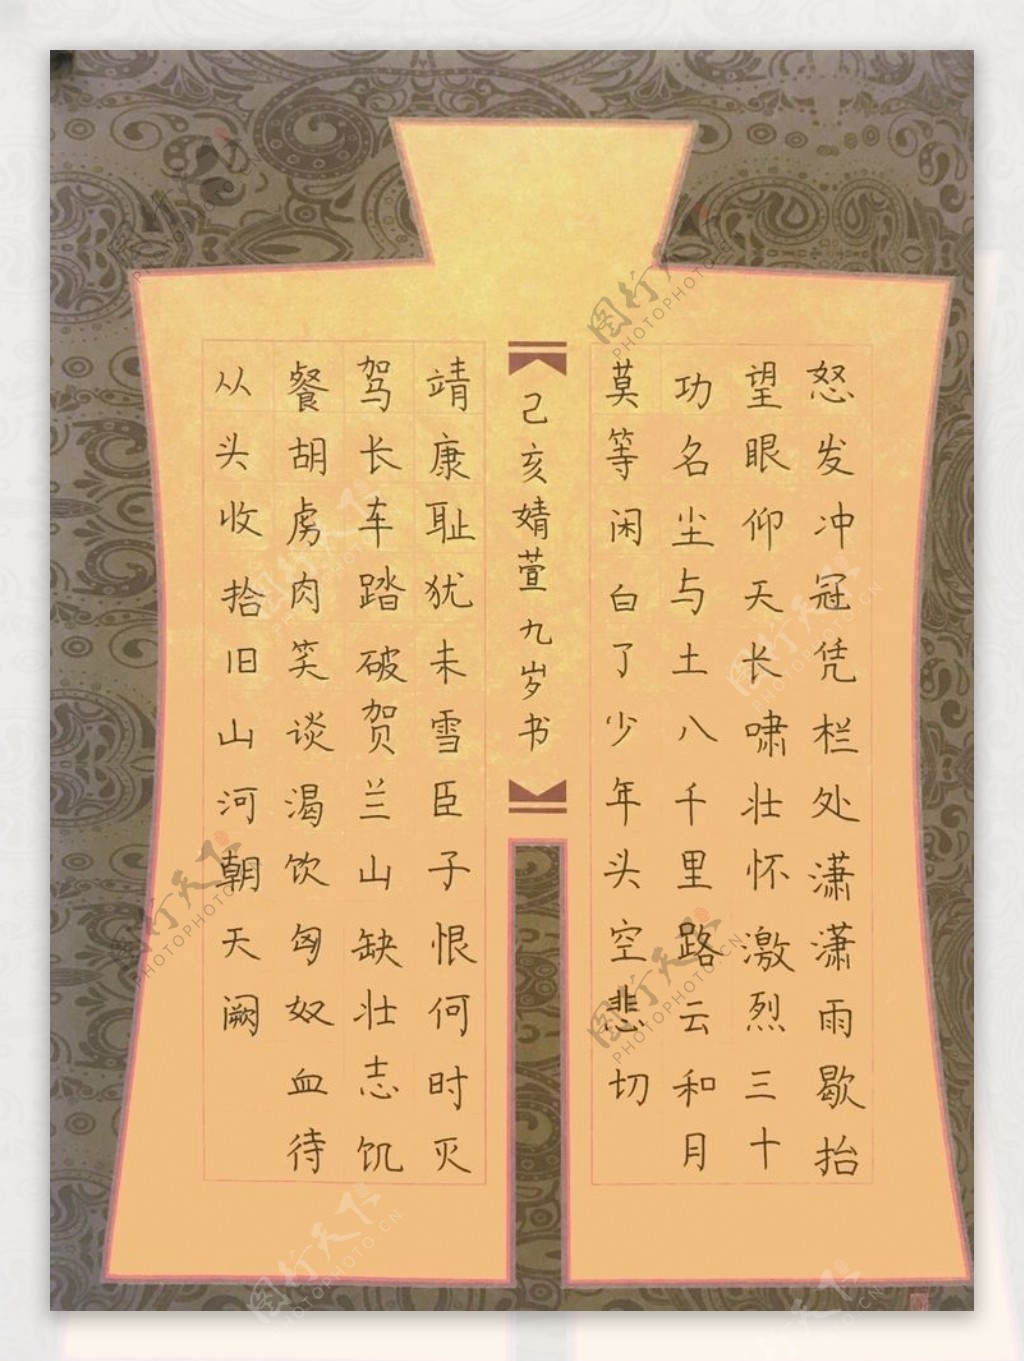 怒发冲冠凭栏处潇潇雨歇抬
望眼仰天长啸壮怀激烈三十
功名尘与土八千里路云和月
莫等闲白了少年头空悲切
己亥婧萱九岁书
靖康耻犹未雪臣子恨何时灭
驾长车踏破贺兰山缺壮志饥
餐胡虏肉笑谈渴饮匈奴血待
从头收拾旧山河朝天阙
图行天下
PHOTOPHOTO.CN